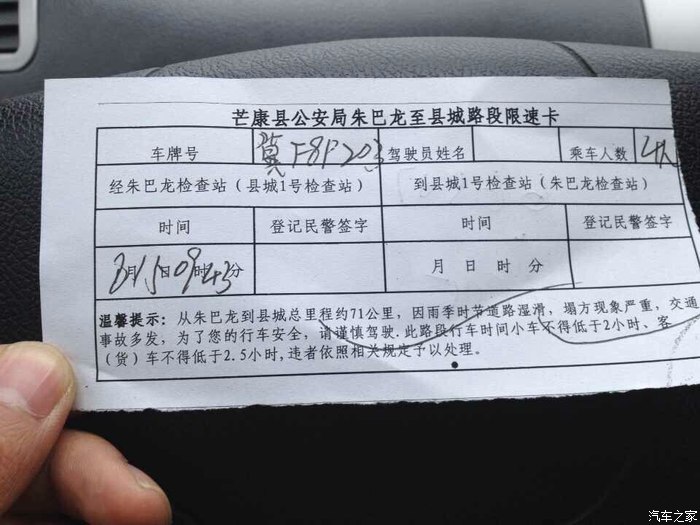 芒康县公安局朱巴龙至县城路段限速卡
车牌号 冀F8P203 驾驶员姓名 乘车人数 4人
经朱巴龙检查站（县城1号检查站） 到县城1号检查站（朱巴龙检查站）
时间 登记民警签字 时间 登记民警签字
月15日09时43分 月 日 时 分
温馨提示：从朱巴龙到县城总里程约71公里，因雨季时节道路湿滑，塌方现象严重，交通
事故多发，为了您的行车安全，请谨慎驾驶.此路段行车时间小车不得低于2小时、客
（货）车不得低于2.5小时,违者依照相关规定予以处理。
汽车之家